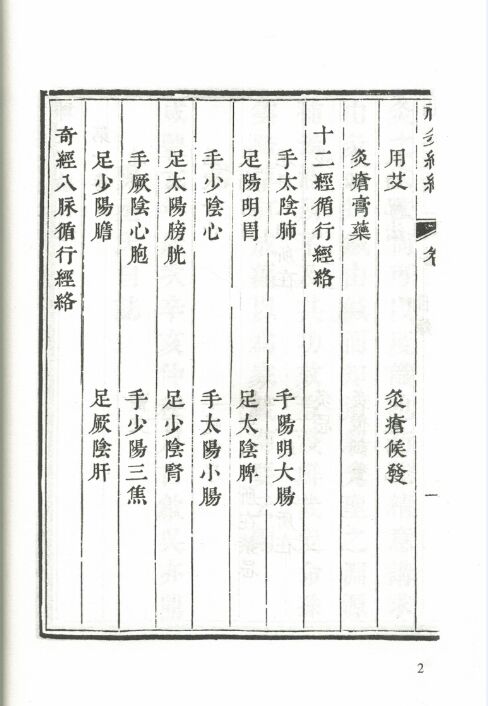 神灸經綸 卷 一
用艾 灸瘡候發
灸瘡膏藥
十二經循行經絡
手太陰肺 手陽明大腸
足陽明胃 足太陰脾
手少陰心 手太陽小腸
足太陽膀胱 足少陰腎
手厥陰心胞 手少陽三焦
足少陽膽 足厥陰肝
奇經八脉循行經絡
2